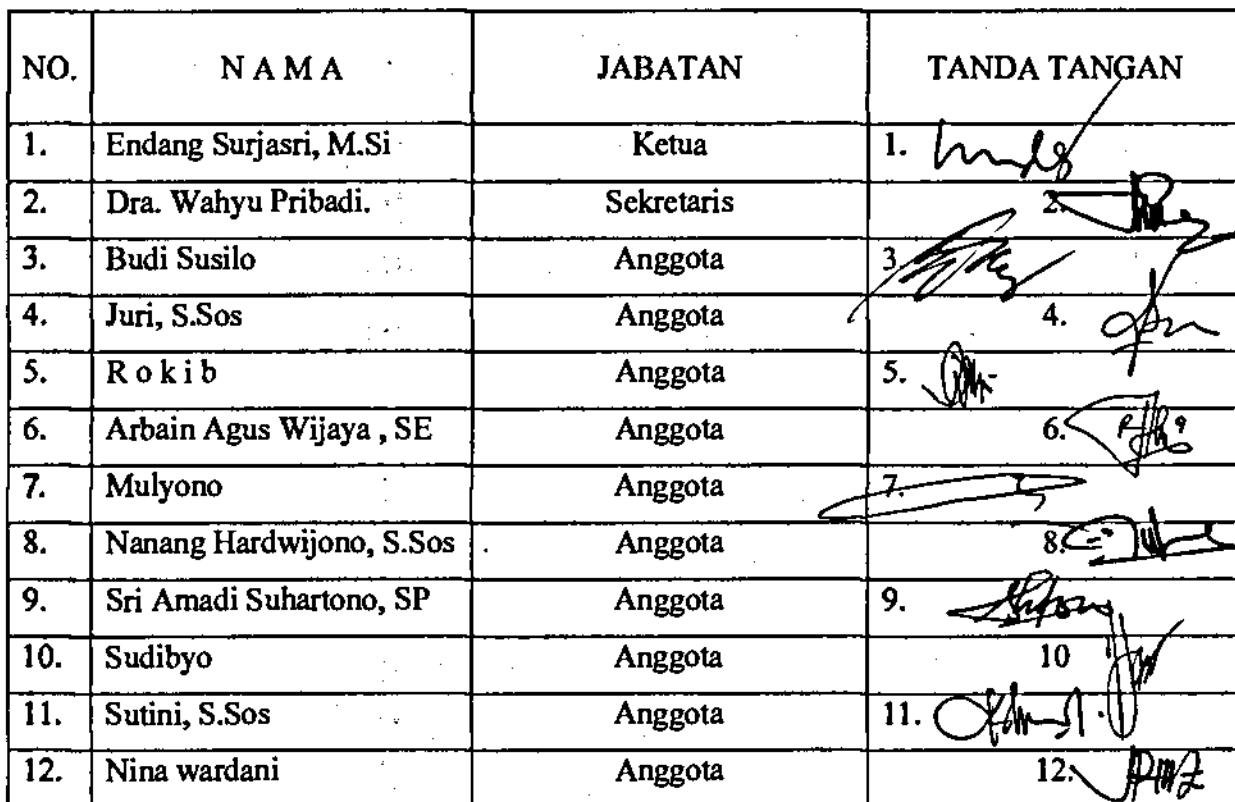 NO. N A M A JABATAN TANDA TANGAN
1. Endang Surjasri, M.Si Ketua 1.
2. Dra. Wahyu Pribadi. Sekretaris 2.
3. Budi Susilo Anggota 3.
4. Juri, S.Sos Anggota 4.
5. R o k i b Anggota 5.
6. Arbain Agus Wijaya , SE Anggota 6.
7. Mulyono Anggota 7.
8. Nanang Hardwijono, S.Sos Anggota 8.
9. Sri Amadi Suhartono, SP Anggota 9.
10. Sudibyo Anggota 10
11. Sutini, S.Sos Anggota 11.
12. Nina wardani Anggota 12.